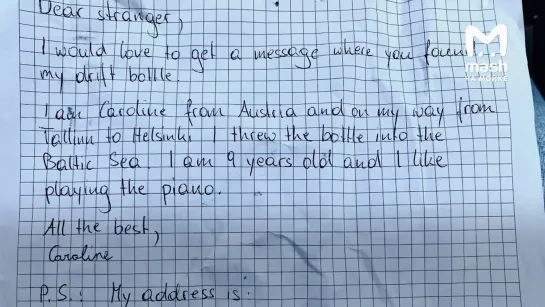 Dear stranger,
I would love to get a message where you found
my drift bottle
I am Caroline from Austria and on my way from
Tallinn to Helsinki I threw the bottle into the
Baltic Sea. I am 9 years old and I like
playing the piano.
All the best,
Caroline
P.S.: My address is:
mash
НА МОЙКЕ